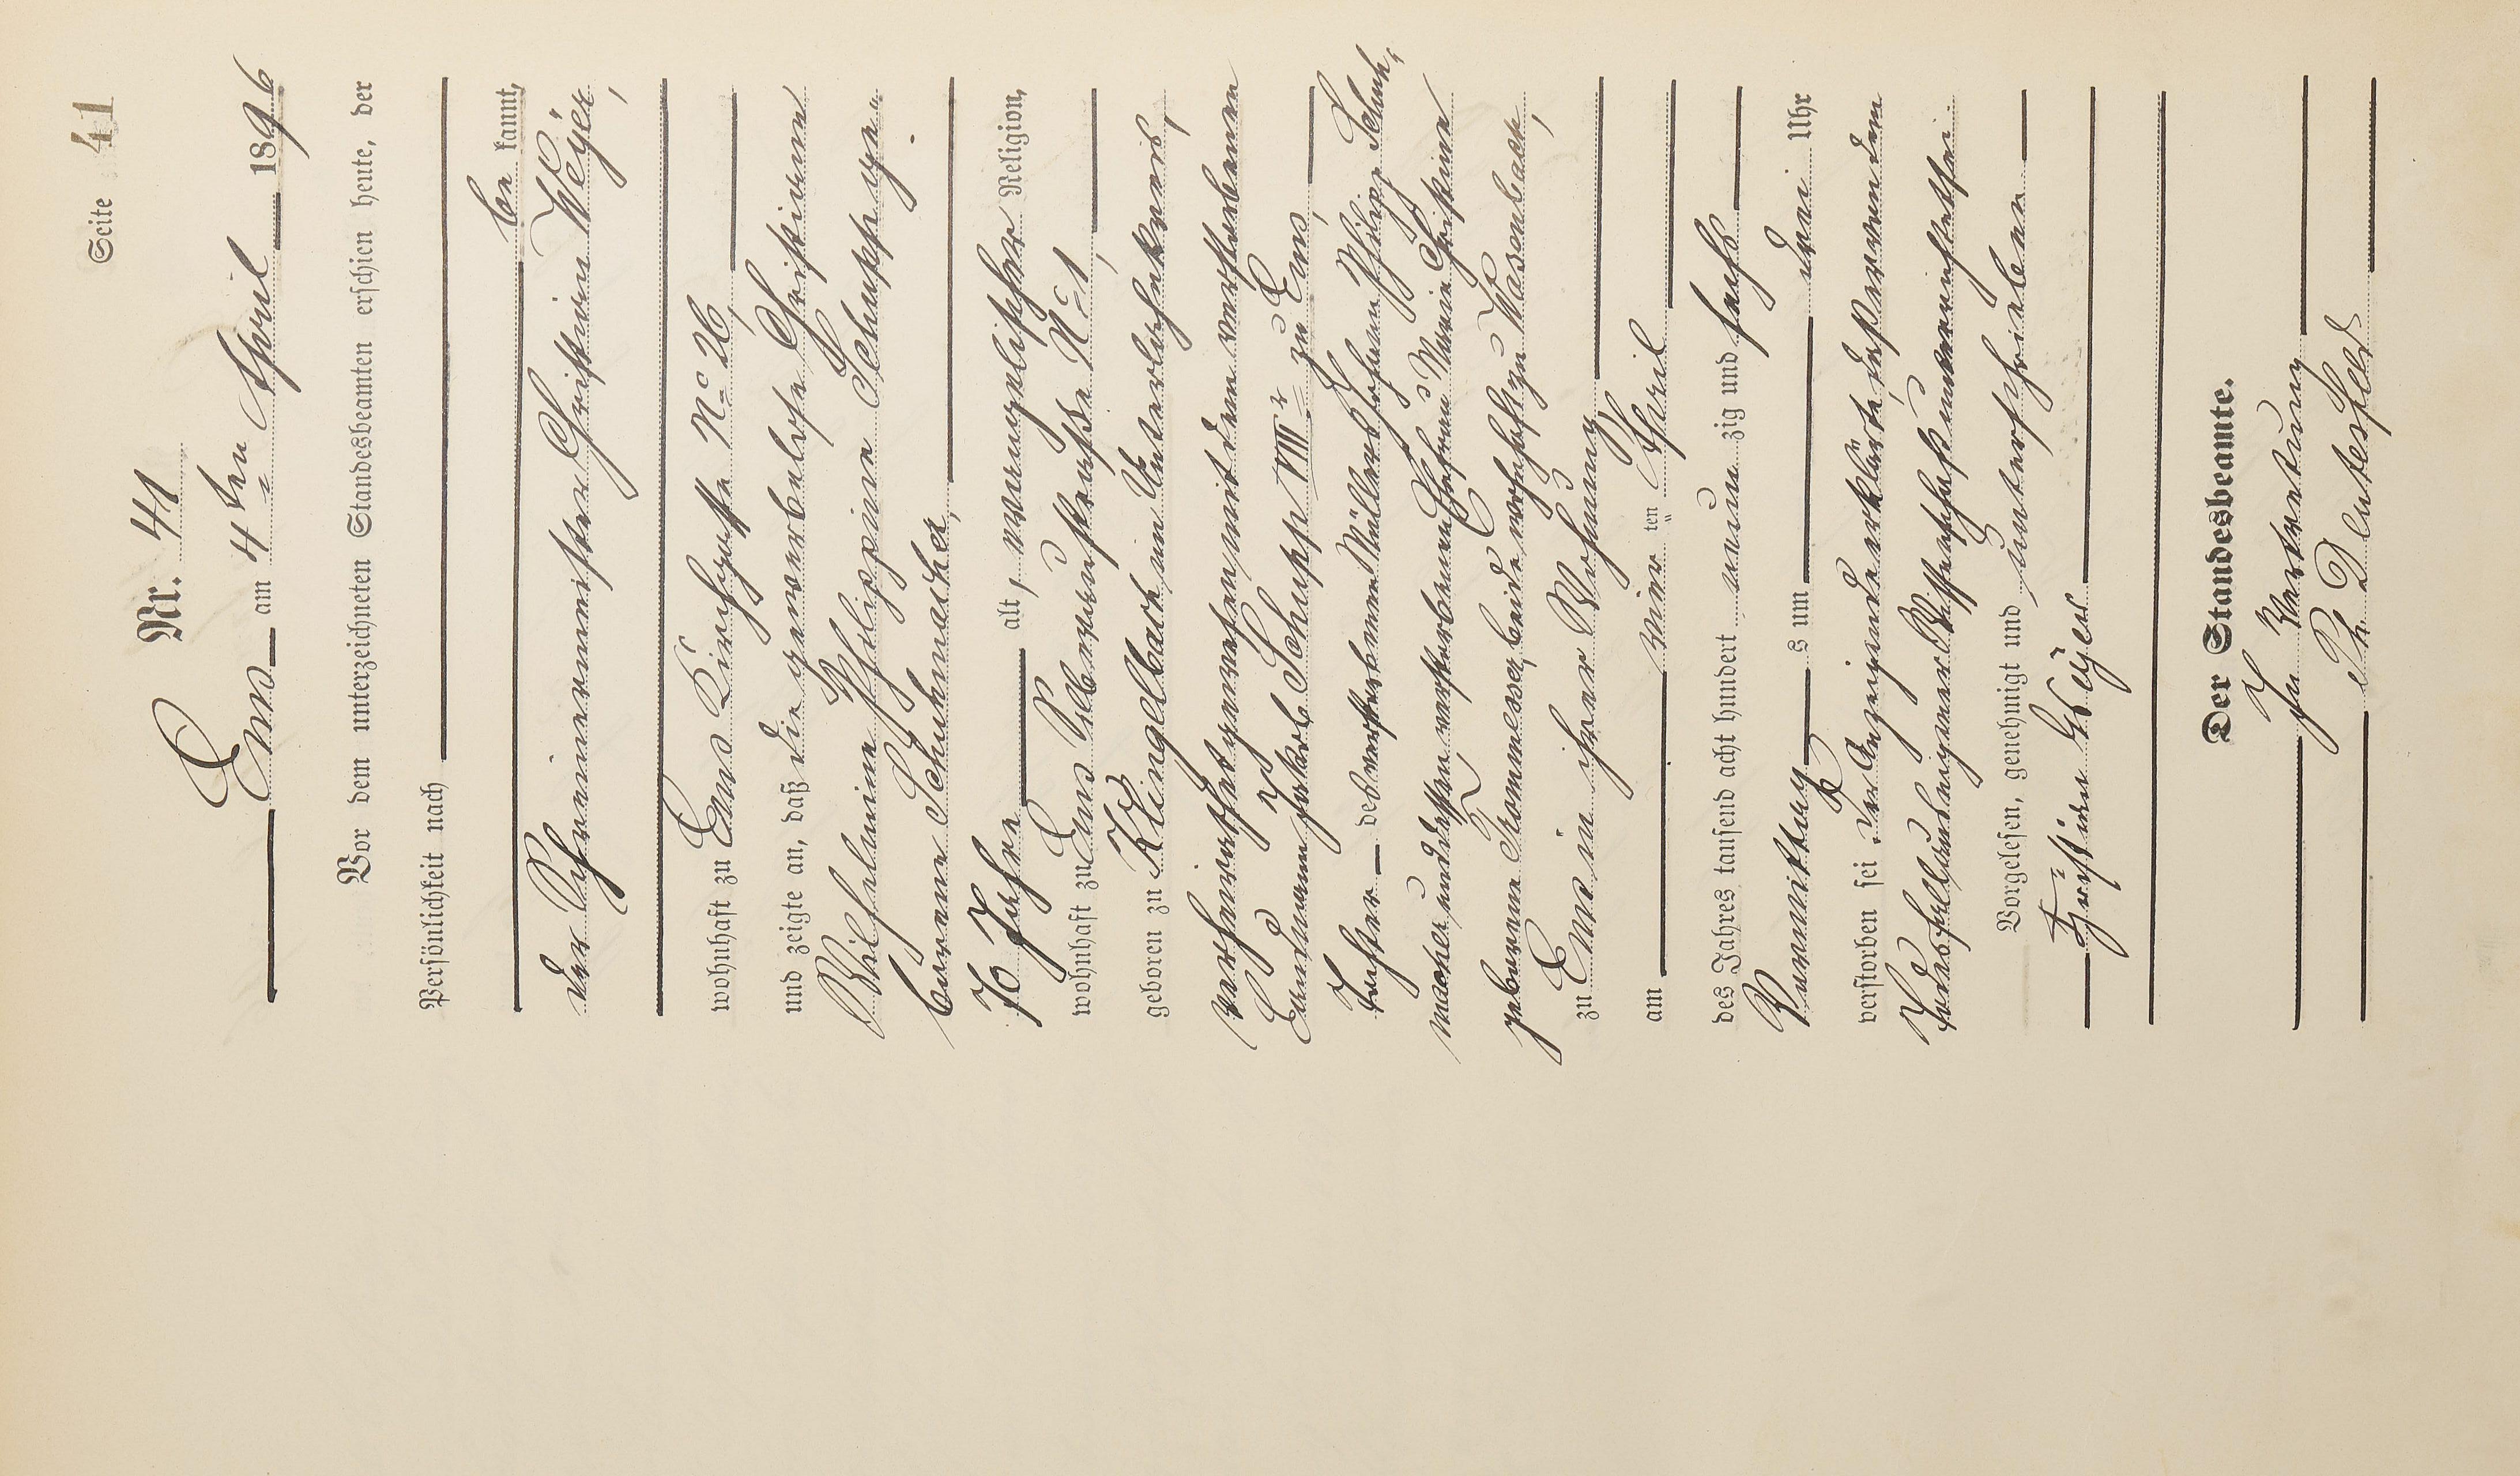 Seite 41
Nr. 41
Ems am 4ten April 1896
Vor dem unterzeichneten Standesbeamten erschien heute, der
Persönlichkeit nach
be kannt,
der Schreinermeister Christian Weyer,
wohnhaft zu Ems Kirchgasse No 26,
und zeigte an, daß die gewerbelose Christiane
Wilhelmine Philippine Schupp ge-
borene Schuhmacher,
76 Jahre alt, evangelischer Religion,
wohnhaft zu Ems No 1,
geboren zu Klingelbach im Unterlahnkreis,
verheirathet gewesen mit dem verstorbenen
Landmann Jakob Schupp VIIIr zu Ems,
Tochter des verstorbenen Müllers Johann Philipp Schuh-
macher und dessen verstorbenen Ehefrau Maria Christine
geborene Trommesser, beide wohnhaft zu Wasenbach,
zu Ems in ihrer Wohnung,
am vier ten April
des Jahres tausend acht hundert neun zig und sechs
Vormittags um drei Uhr
verstorben sei, der Anzeigende erklärte, daß er von dem
Todesfall aus eigener Wissenschaft unterrichtet sei.
Vorgelesen, genehmigt und unterschrieben
Christian Weyer
Der Standesbeamte.
In Vertretung
Ph Deutesfeld